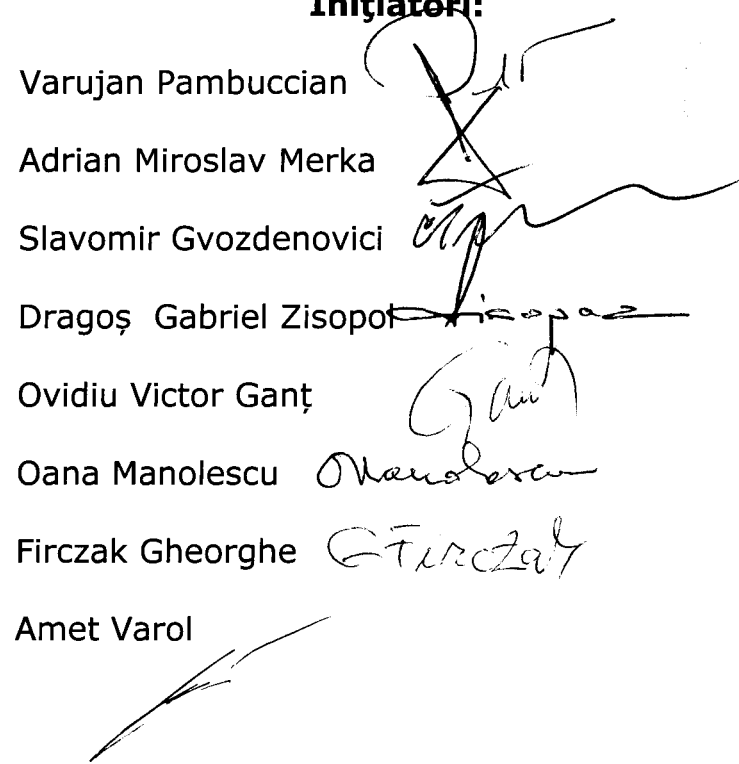 Iniţiatori:
Varujan Pambuccian
Adrian Miroslav Merka
Slavomir Gvozdenovici
Dragoș Gabriel Zisopol
Ovidiu Victor Ganț Ganț
Oana Manolescu OManolescu
Firczak Gheorghe GFirczak
Amet Varol